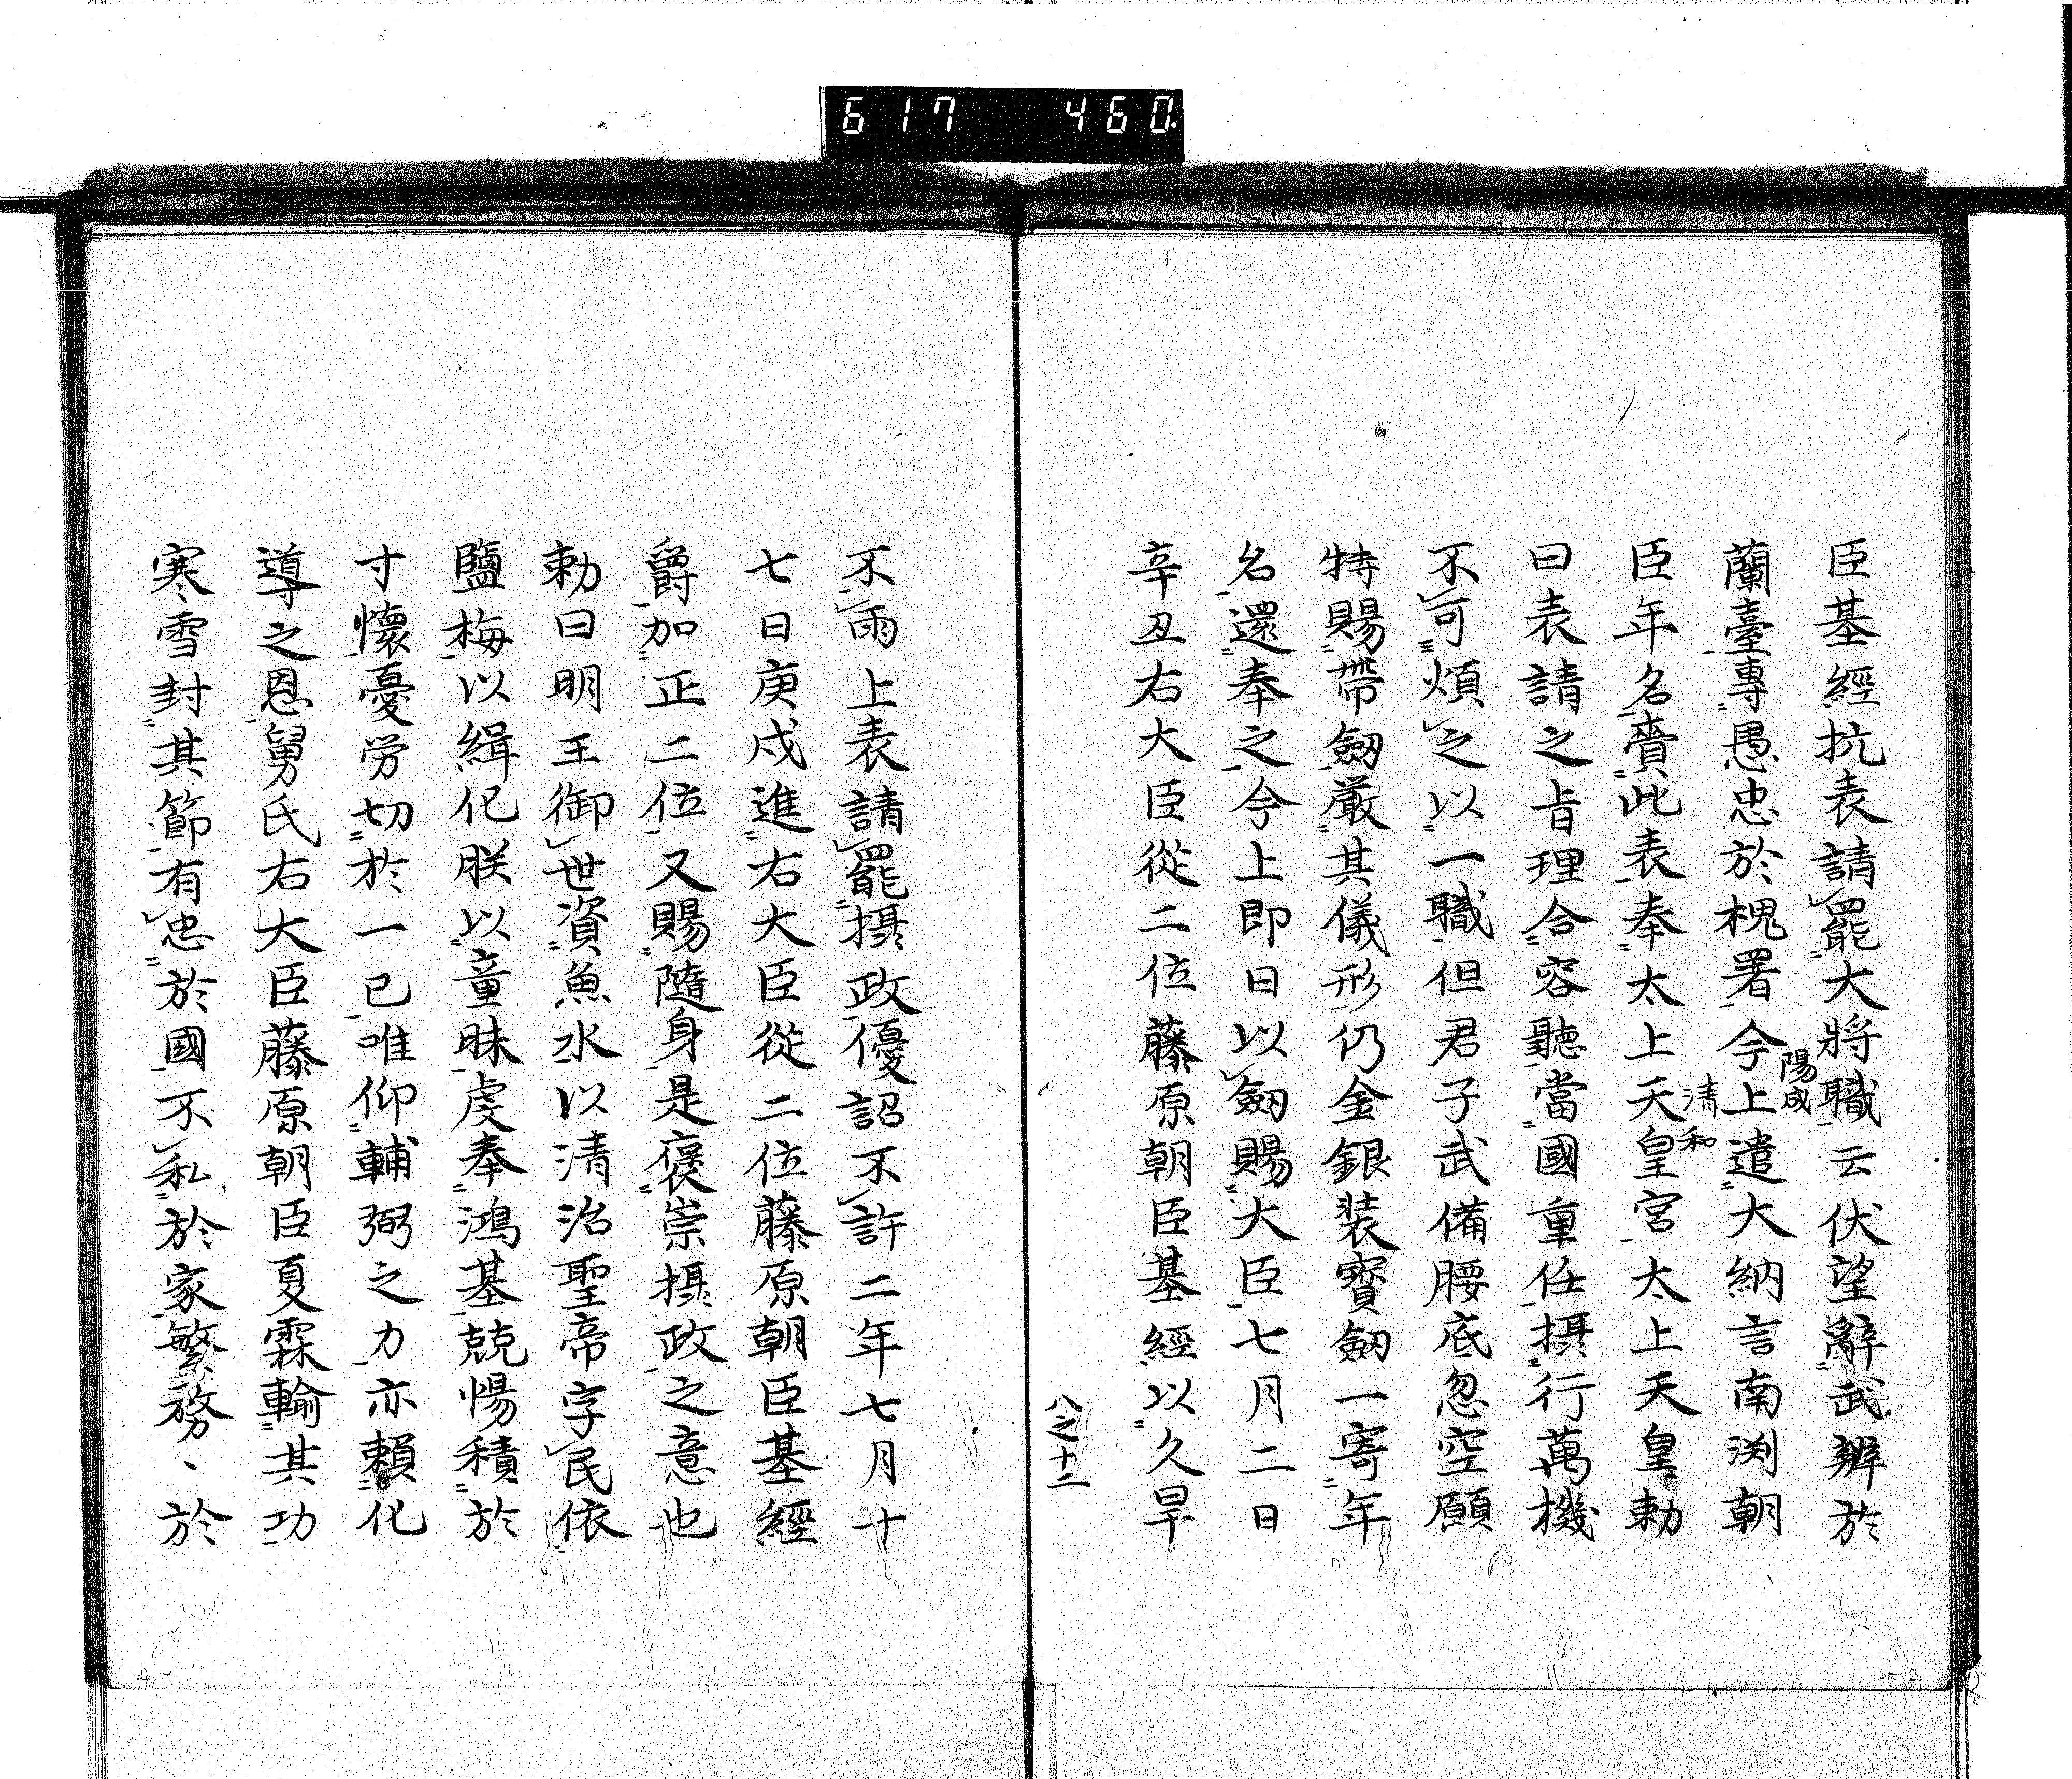 617 460
臣基經抗表請罷大將職云伏望辭武辨於
蘭臺專愚忠於槐署今上遣大納言南渕朝
陽成
臣年名賷此表奉太上天皇宮太上天皇勅
清和
曰表請之旨理合容聽當國重任摂行萬機
不可煩之以一職但君子武備腰底忽空願
特賜帶劔嚴其儀形仍金銀装寳劔一寄年
名還奉之今上即日以劔賜大臣七月二日
辛丑右大臣從二位藤原朝臣基經以久旱
八之十二
不雨上表請罷摂政優詔不許二年七月十
七日庚戌進右大臣從二位藤原朝臣基經
爵加正二位又賜隨身是褒崇摂政之意也
勅曰明王御世資魚水以清治聖帝字民依
鹽梅以緝化朕以童昧虔奉鴻基兢惕積於
寸懷憂労切於一已唯仰輔弼之力亦頼化
導之恩舅氏右大臣藤原朝臣夏霖輸其功
寒雪封其節有忠於國不私於家繁務、於